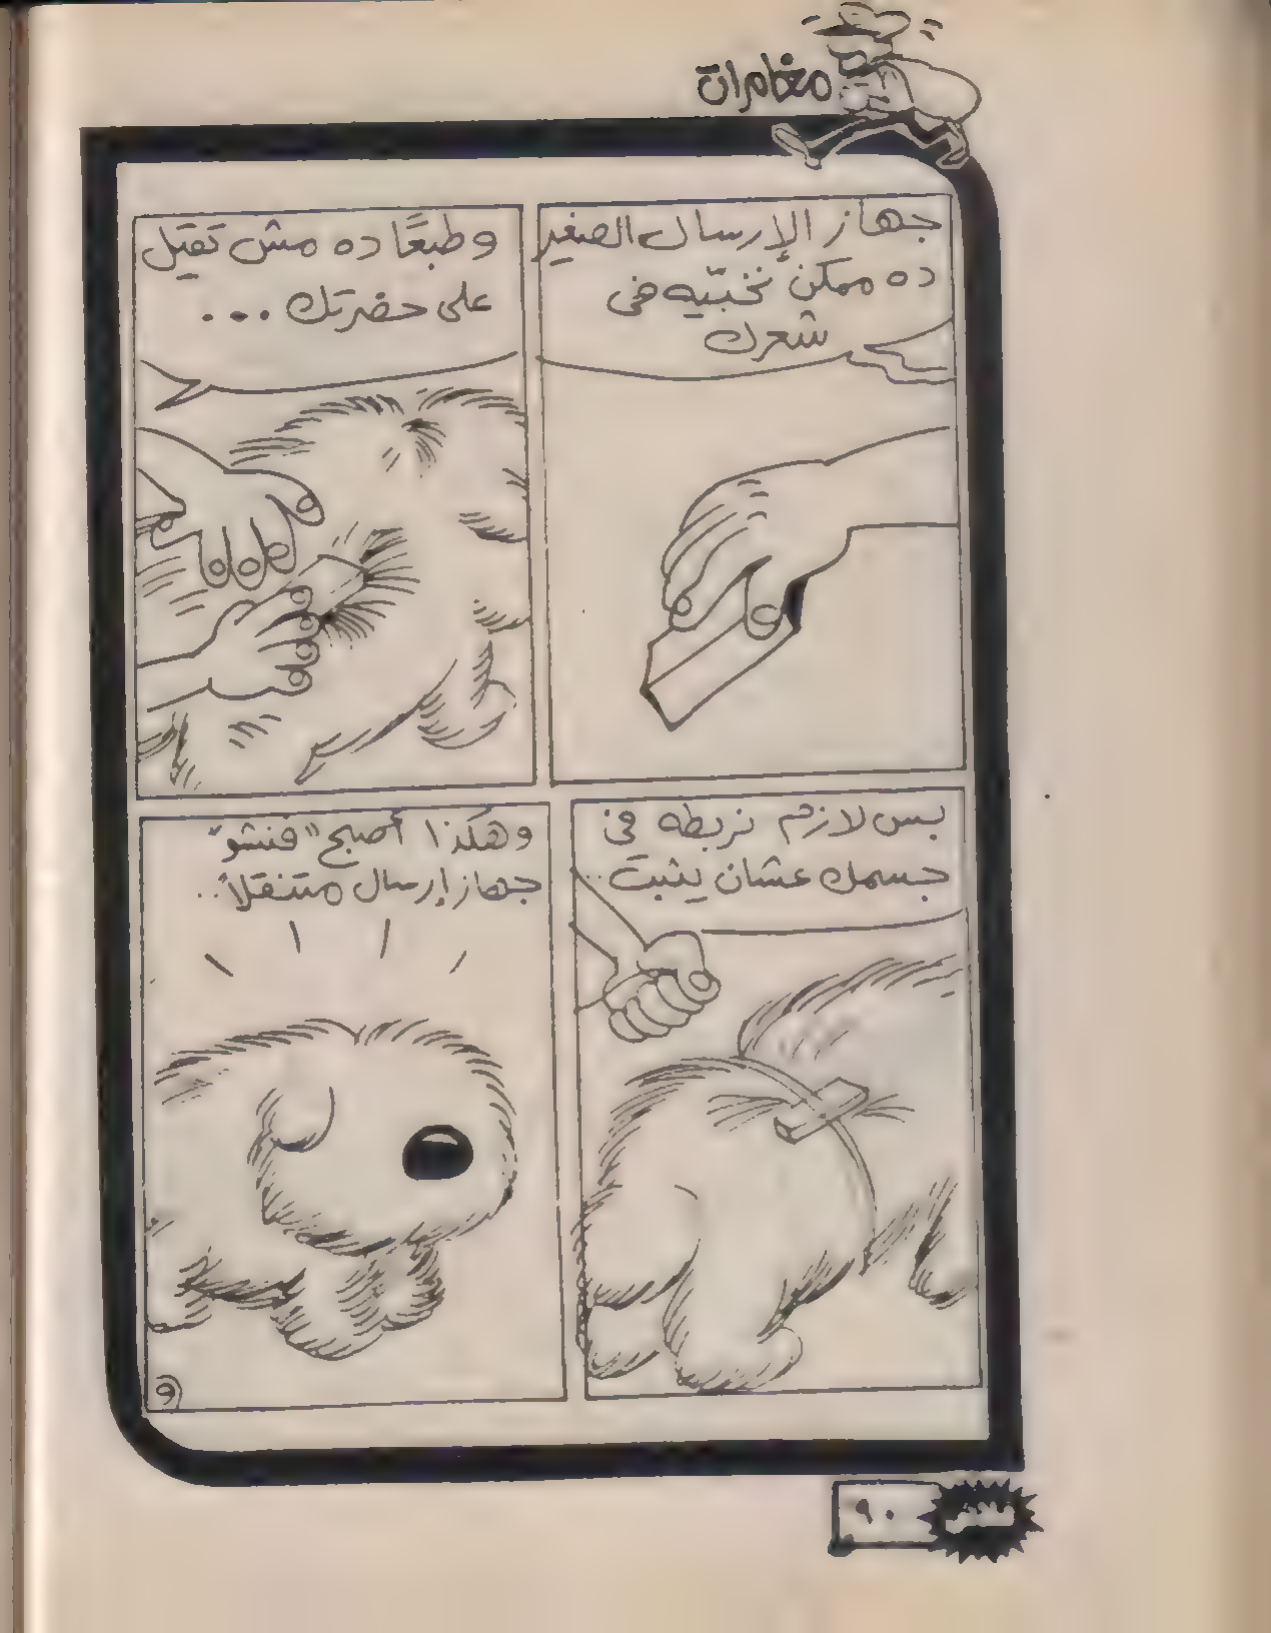 مغامرات
جهاز الإرسال الصغير
ده ممكن نخبّيه فى
شعرك
وطبعًا ده مش تقيل
على حضرتك ...
بس لازم نربطه فى
جسمك عشان يثبت..
وهكذا أصبح "فنشو"
جهاز إرسال متنقلاً..
٩
٩٠